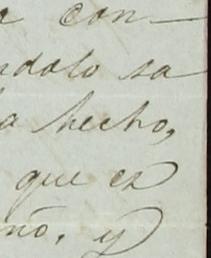 a con-
ndolo sa
a hecho,
que es
no, y